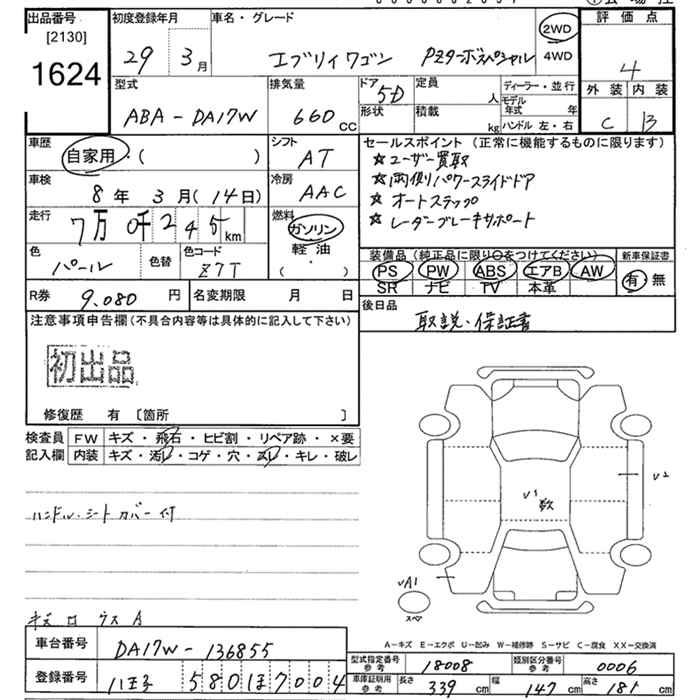 出品番号 初度登録年月 車名・グレード 評価点
[2130] 2WD
1624 29 3月 エブリイワゴン PZターボスペシャル 4WD 4
型式 排気量 ドア 定員 ディーラー・並行 外装 内装
ABA-DA17W 660cc 5D 人 モデル年式 年 C B
形状 積載 kg ハンドル 左・右
車歴 シフト セールスポイント(正常に機能するものに限ります)
自家用・( ) AT ☆ユーザー買取
車検 冷房 ☆両側パワースライドドア
8年 3月(14日) AAC ☆オートステップ
走行 燃料 ☆レーダーブレーキサポート
7万0千245km ガソリン
軽油
色 色替 色コード ( ・ ) 装備品(純正品に限り○をつけてください) 新車保証書
パール Z7T PS PW ABS エアB AW 有 無
SR ナビ TV 本革
R券 9,080円 名変期限 月 日 後日品
取説・保証書
注意事項申告欄(不具合内容等は具体的に記入して下さい)
初出品
修復歴 有 [箇所 ]
検査員 FW キズ・飛石・ヒビ割・リペア跡・×要
記入欄 内装 キズ・汚レ・コゲ・穴・スレ・キレ・破レ
U2
U1
数
ハンドル・シートカバー付
UA1
スペア
A-キズ E-エクボ U-凹み W-補修跡 S-サビ C-腐食 XX-交換済
車台番号 DA17W-136855
型式指定番号 参考 18008 類別区分番号 参考 0006
登録番号 八王子 580 ほ 7004
車庫証明用 参考 長さ 339cm 幅 147cm 高さ 181cm